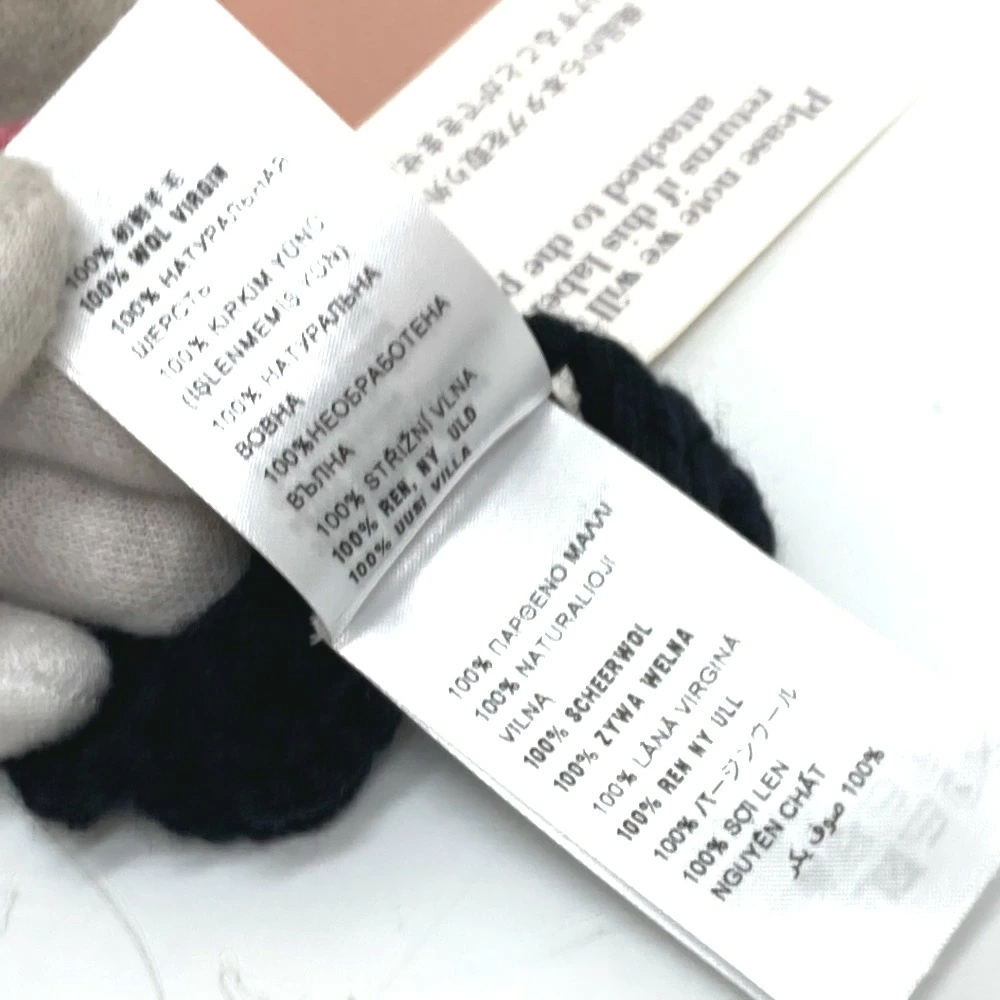 100% WOL VIRGIN
100% НАТУРАЛЬНАЯ
ШЕРСТЬ
100% KIRKIM YÜNÜ
(İŞLENMEMİŞ YÜN)
100% НАТУРАЛЬНА
ВОВНА
100%НЕОБРАБОТЕНА
ВЪЛНА
100% STŘIŽNÍ VLNA
100% REN, NY ULD
100% UUSI VILLA
100% ΠΑΡΘΕΝΟ ΜΑΛΛΙ
100% NATURALIOJI
VILNA
100% SCHEERWOL
100% ZYWA WELNA
100% LÂNĂ VIRGINĂ
100% REN NY ULL
100% バージンウール
100% SỢI LEN
NGUYÊN CHẤT
100% صوف بكر
Please note we will
returns if this labe
attached to the p
製品から本タグを取り外
けすることができませ